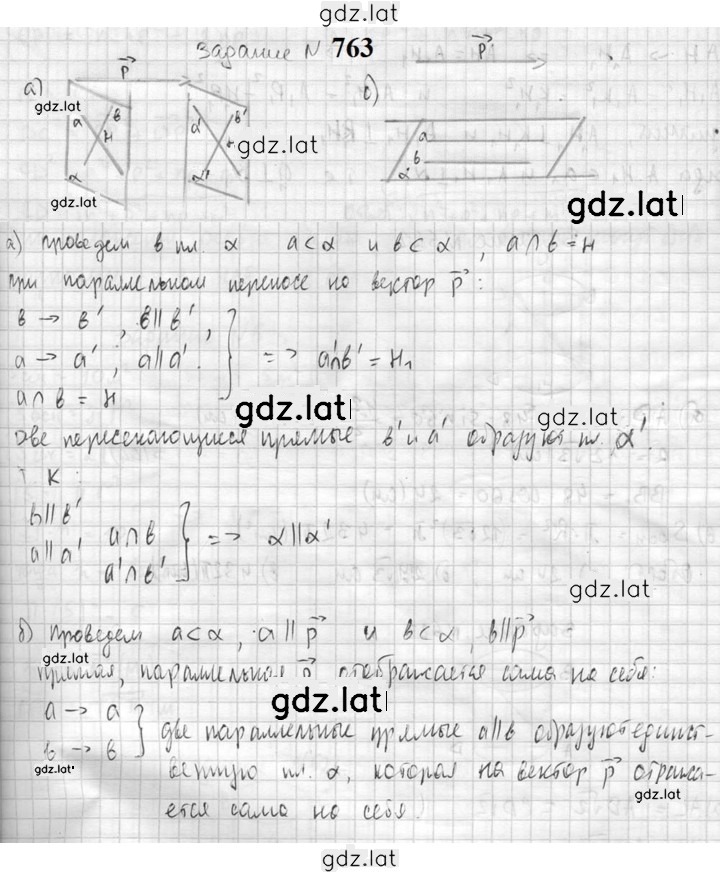 gdz.lat
Задание N 763
а) p⃗ б) p⃗
gdz.lat
а в н а' в'
а
в
gdz.lat
α α' α
gdz.lat
gdz.lat
а) проведем в пл. α a⊂α и в⊂α, a∩в=H
при параллельном переносе на вектор p⃗:
в → в', в||в',
a → a', a||a'. } => a'∩в' = H₁
a∩в = H
gdz.lat
gdz.lat
две пересекающиеся прямые в' и a' образуют пл. α'.
т.к:
в||в'
a||a' a∩в
a'∩в' } => α||α'
gdz.lat
б) проведем a⊂α, a||p⃗ и в⊂α, в||p⃗
gdz.lat
прямая, параллельная p⃗ отображается сама на себя:
gdz.lat
a → a
в → в } две параллельные прямые a||в образуют единст-
gdz.lat
венную пл. α, которая на вектор p⃗ отража-
gdz.lat
ется сама на себя.
gdz.lat